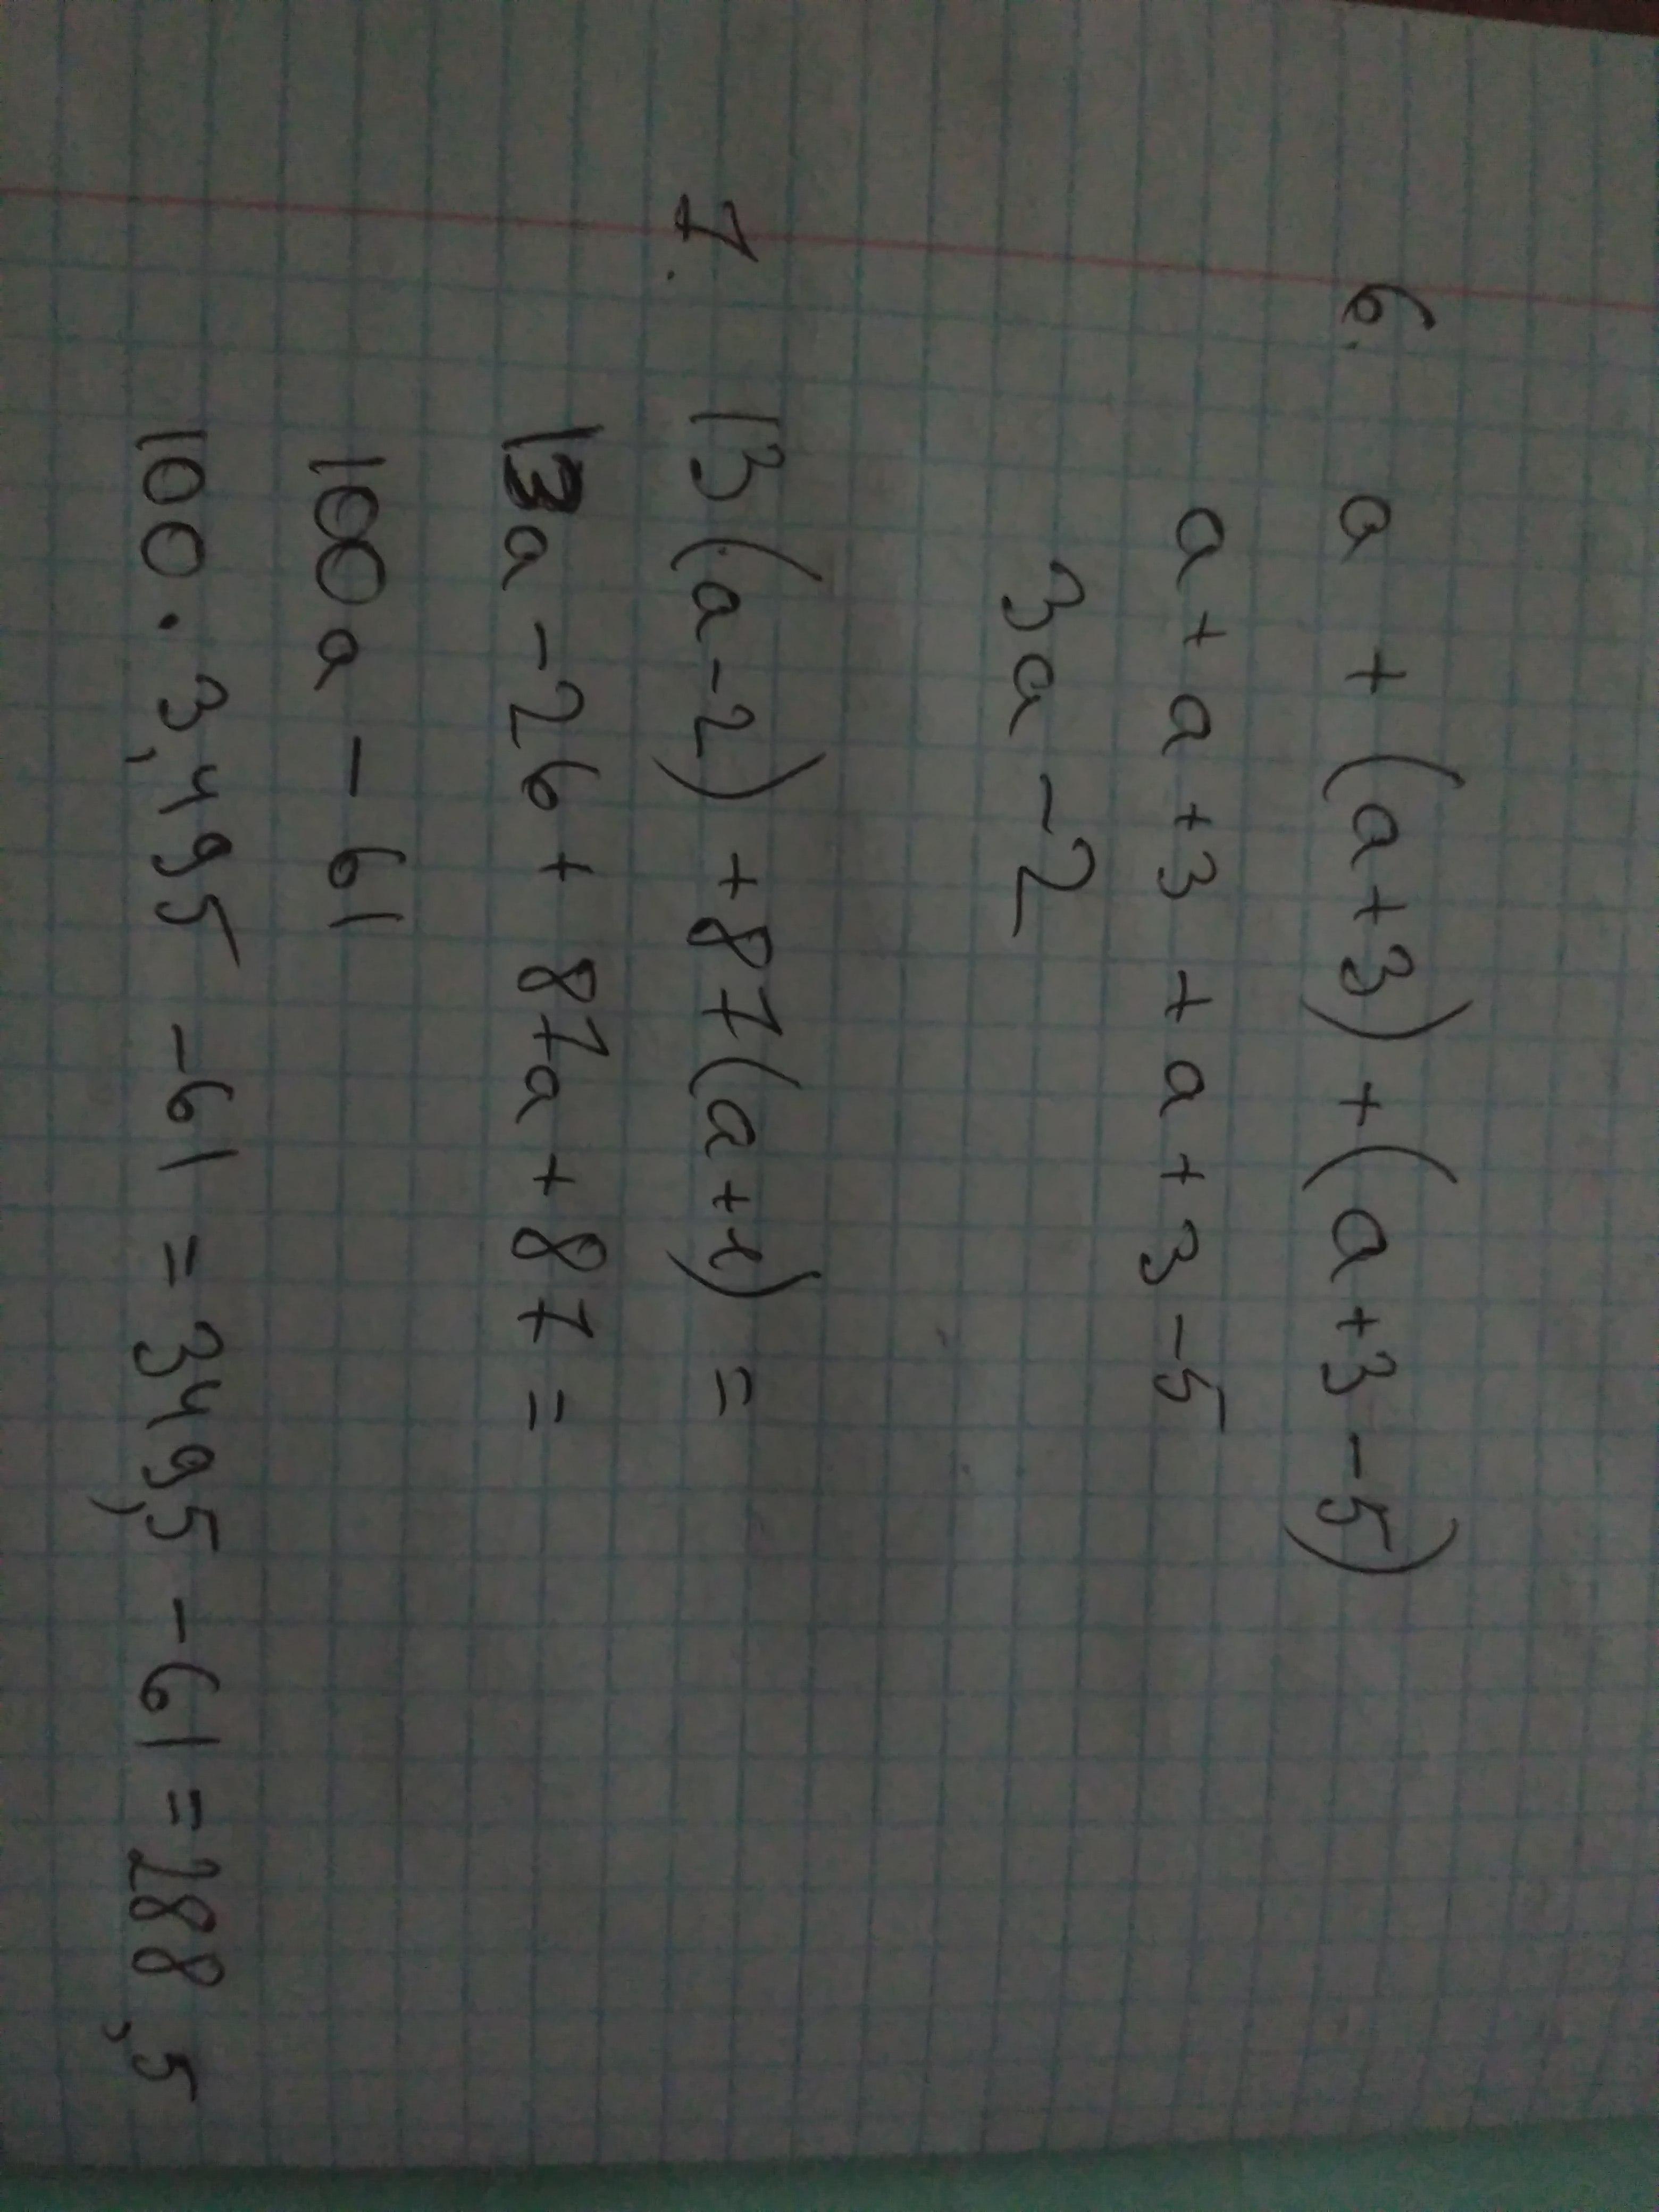 6. a + (a+3) + (a+3-5)
a + a + 3 + a + 3 - 5
3a - 2
7. 13(a-2) + 87(a+1) =
13a - 26 + 87a + 87 =
100a - 61
100 · 3,495 - 61 = 349,5 - 61 = 288,5